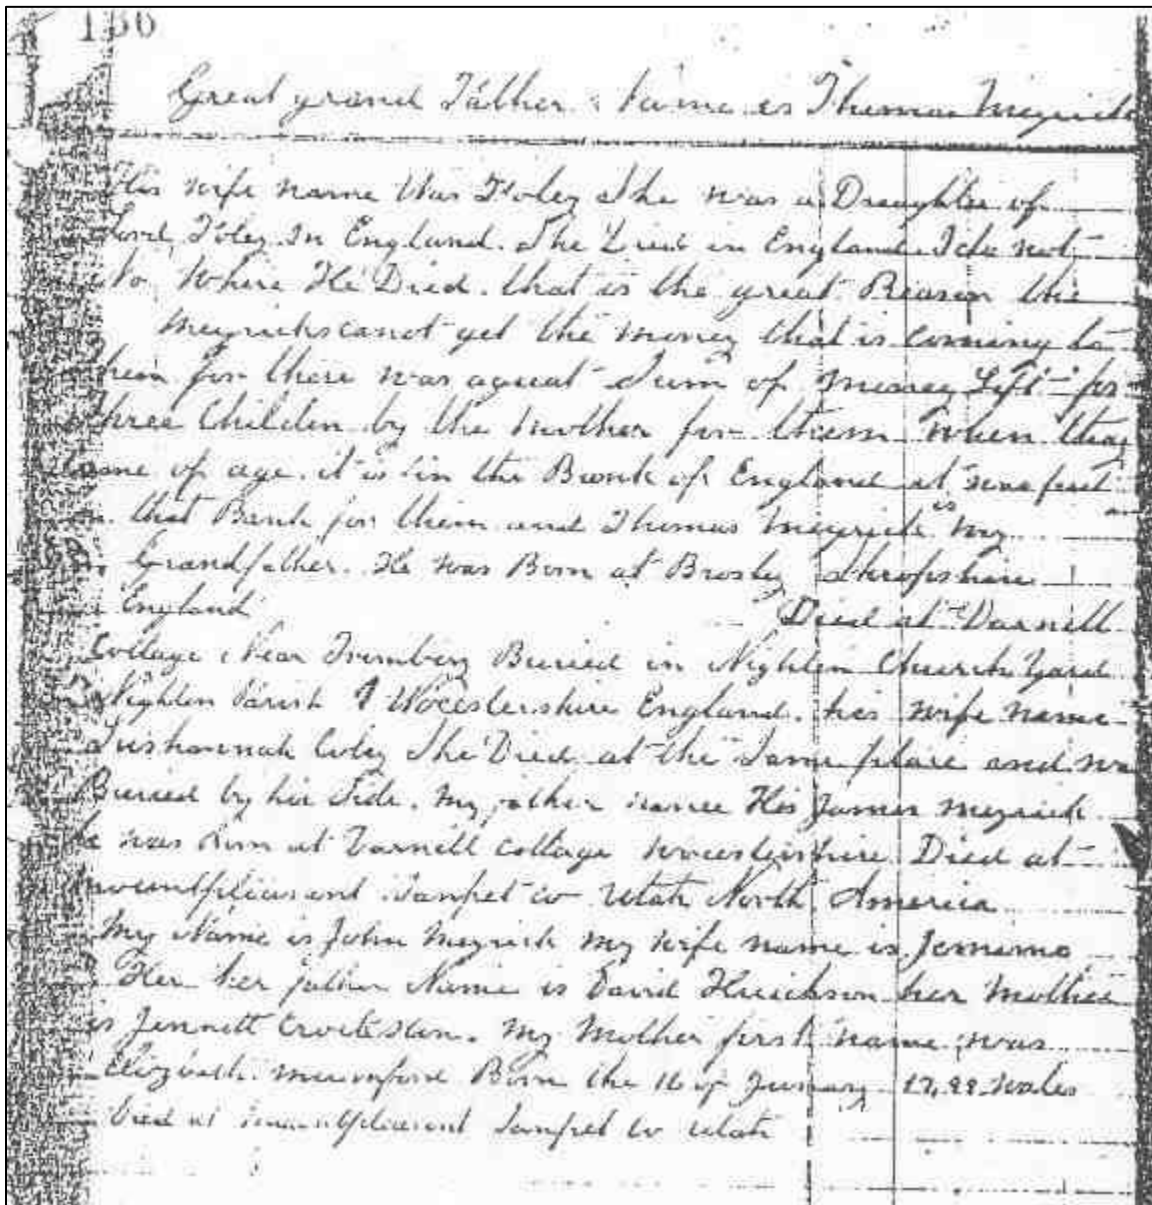 136
Great grand Father name is Thomas Meyrick
His wife name Was Foley She was a Daughter of
Lord Foley In England. She Died in England. I do not
No Where He Died. that is the great Reason the
Meyricks canot get the money that is Coming to
them for there was agreat Sum of Money Left for
three Children by the Mother for them When thay
Came of age. it is in the Bank of England it was put
in that Bank for them and Thomas Meyrick is my
Grandfather. He was Born at Brosley Shropshire
England Died at Darnell
Cottage Near Buried in Nighten Church Yard
Nighten Parish Wocestershire England. his wife name
Sushannah Coley She Died at the Same place and was
Buried by his Side. My father name His James Meyrick
he was Born at Varnell Cottage Wocestershire Died at
mountpleasant Sanpet co Utah North America
My Name is John Meyrick my wife name is Jemimo
Her her father Name is David her Mother
is Jennett. My Mother first name was
Elizbeth Born the 16 of January Wales
Died at mountpleasant Sanpet co utah